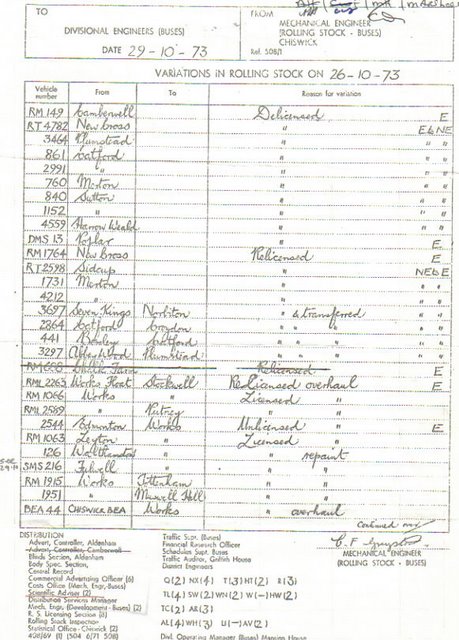 TO
DIVISIONAL ENGINEERS (BUSES)
DATE 29-10-73
FROM
MECHANICAL ENGINEER
(ROLLING STOCK - BUSES)
CHISWICK
Ref. 508/1
VARIATIONS IN ROLLING STOCK ON 26-10-73
Vehicle number From To Reason for variation
RM 149 Camberwell Delicensed E
RT 4782 New Cross " E & NE
3464 Plumstead " " "
861 Catford " " "
2991 " " " "
760 Merton " " "
840 Sutton " " "
1152 " " " "
4559 Harrow Weald " " "
DMS 13 Poplar " E
RM 1764 New Cross Relicensed E
RT 2598 Sidcup " NE & E
1731 Merton " " "
4212 " " " "
3697 Seven Kings Norbiton " & transferred " "
2864 Catford Croydon " " " " "
441 Bromley Catford " " " " "
3297 Abbey Wood Plumstead " " " " "
RM Relicensed E
RML 2263 Works Float Stockwell Relicensed overhaul E
RM 1066 Works Licensed "
RML 2589 " Putney " "
2544 Edmonton Works Unlicensed " E
RM 1063 Leyton " Licensed "
126 Walthamstow " " repaint
SMS 216 Fulwell " " "
RM 1915 Works Tottenham " "
1951 " Muswell Hill " "
BEA 44 CHISWICK BEA Works " overhaul
Continued over
DISTRIBUTION
Advert, Controller, Aldenham
Advert, Controller, Camberwell
Bloods Section, Aldenham
Body Spec. Section,
Central Record
Commercial Advertising Officer (6)
Costs Office (Mech. Engr-Buses)
Scientific Adviser (2)
Distribution Services Manager
Mech. Engr, (Development - Buses) (2)
R. S. Licensing Section (8)
Rolling Stock Inspector
Statistical Office - Chiswick (2)
408/69 (1) (504 6/71 508)
Traffic Supt. (Buses)
Financial Research Officer
Schedules Supt. Buses
Traffic Auditor, Griffith House
District Engineers
Q(2) NX(4) T(3) HT(2) R(3)
TL(4) SW(2) WN(2) W(-) HW(2)
TC(2) AR(3)
AL(4) WH(3) U(-) AV(2)
Divl. Operating Manager (Buses) Mansion House
MECHANICAL ENGINEER
(ROLLING STOCK - BUSES)